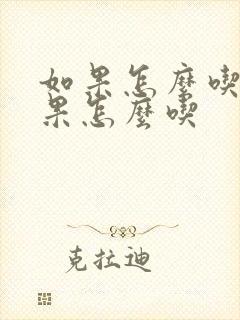 如果怎麼喫
果怎麼喫
克拉迪